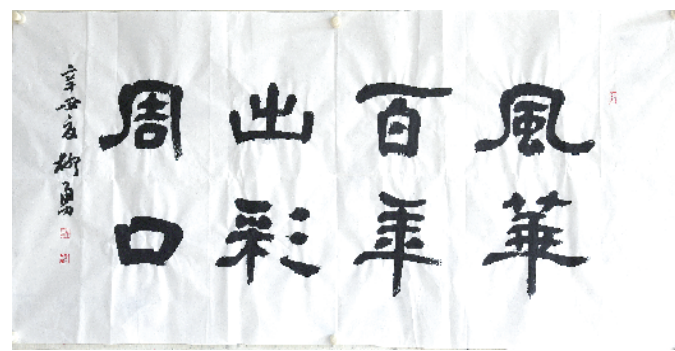 風華
百年
出彩
周口
辛丑夏柳勇